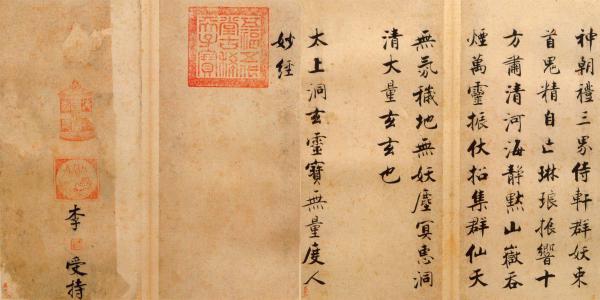 神朝禮三界侍軒群妖束
首鬼精自亡琳琅振響十
方肅清河海靜默山嶽吞
煙萬靈振伏招集群仙天
無氛穢地無妖塵冥慧洞
清大量玄玄也
太上洞玄靈寶無量度人
妙經
五福五代
堂古稀
天子寶
李 受持